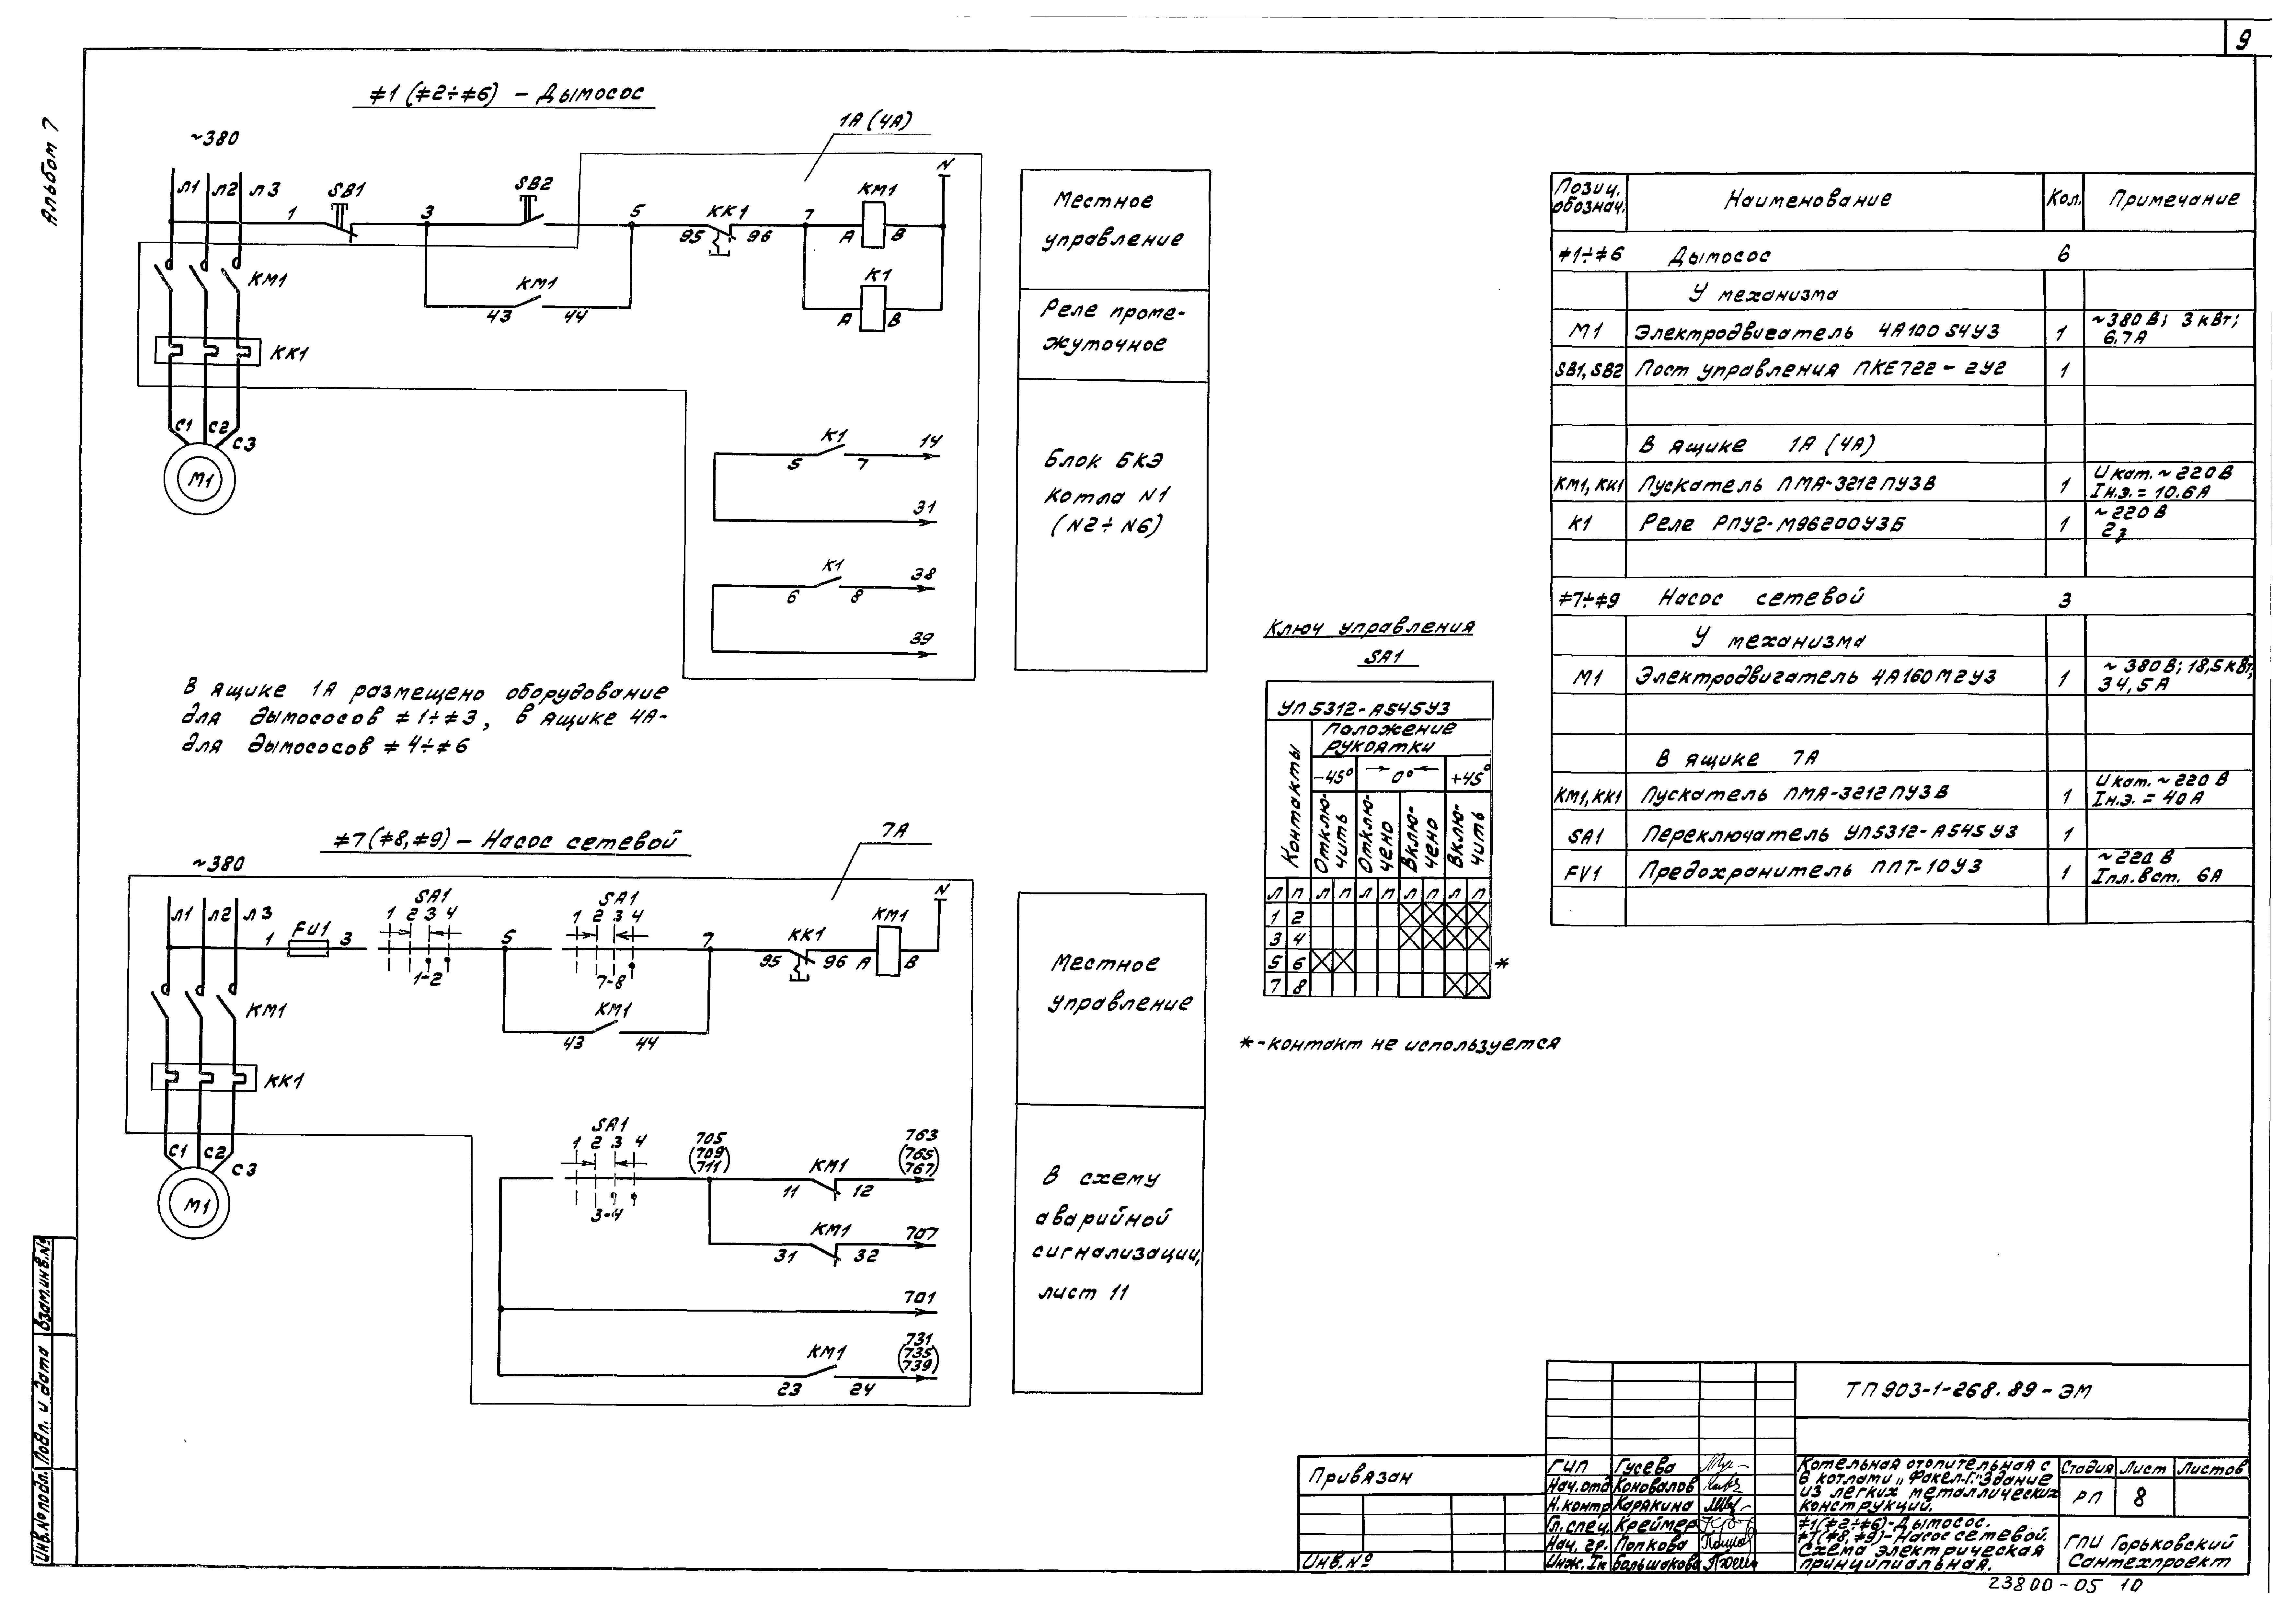 9
Альбом 7
≠1 (≠2÷≠6) – Дымосос
1А (4А)
~380
Л1 Л2 Л3
1
SB1
3
SB2
5
KK1
95 96
7
KM1
А В
N
K1
А В
KM1
43 44
KM1
KK1
С1 С2 С3
М1
K1
5 7
14
31
K1
6 8
38
39
Местное
управление
Реле проме-
жуточное
Блок БКЭ
Котла N1
(N2÷N6)
В ящике 1А размещено оборудование
для дымососов ≠1÷≠3, в ящике 4А-
для дымососов ≠4÷≠6
≠7(≠8,≠9) – Насос сетевой
7А
~380
Л1 Л2 Л3
1
FU1
3
SA1
1 2 3 4
1-2
5
SA1
1 2 3 4
7-8
7
KK1
95 96
KM1
А В
N
KM1
43 44
KM1
KK1
С1 С2 С3
М1
SA1
1 2 3 4
3-4
705
(709
711)
KM1
11 12
763
(765
767)
KM1
31 32
707
701
KM1
23 24
731
(735
739)
Местное
управление
В схему
аварийной
сигнализации,
лист 11
Ключ управления
SA1
УП5312-А545У3
Контакты
Положение
рукоятки
-45° 0° +45°
Отклю-
чить
Отклю-
чено
Вклю-
чено
Вклю-
чить
Л П Л П Л П Л П Л П
1 2
3 4
5 6 *
7 8
*-контакт не используется
Позиц. обознач. Наименование Кол. Примечание
≠1÷≠6 Дымосос 6
У механизма
М1 Электродвигатель 4А100S4У3 1 ~380В; 3кВт; 6,7А
SB1, SB2 Пост управления ПКЕ722-2У2 1
В ящике 1А (4А)
KM1, KK1 Пускатель ПМА-3212ПУ3В 1 Uкат. ~220В Iн.э.=10.6А
K1 Реле РПУ2-М96200У3Б 1 ~220В 2з
≠7÷≠9 Насос сетевой 3
У механизма
М1 Электродвигатель 4А160М2У3 1 ~380В; 18,5кВт; 34,5А
В ящике 7А
KM1, KK1 Пускатель ПМА-3212ПУ3В 1 Uкат. ~220В Iн.э.=40А
SA1 Переключатель УП5312-А545У3 1
FV1 Предохранитель ППТ-10У3 1 ~220В Iпл.вст. 6А
ТП903-1-268.89-ЭМ
Привязан
Инв.№
ГИП Гусева
Нач.отд Коновалов
Н.контр Карякина
Гл.спец. Креймер
Нач. гр. Попкова
Инж. Iк Большакова
Котельная отопительная с
6 котлами „Факел-Г." Здание
из легких металлических
конструкций.
Стадия Лист Листов
РП 8
≠1(≠2÷≠6)-Дымосос.
≠7(≠8,≠9)-Насос сетевой.
Схема электрическая
принципиальная.
ГПИ Горьковский
Сантехпроект
23800-05 10
Инв.№подл. Подп. и дата Взам.инв.№